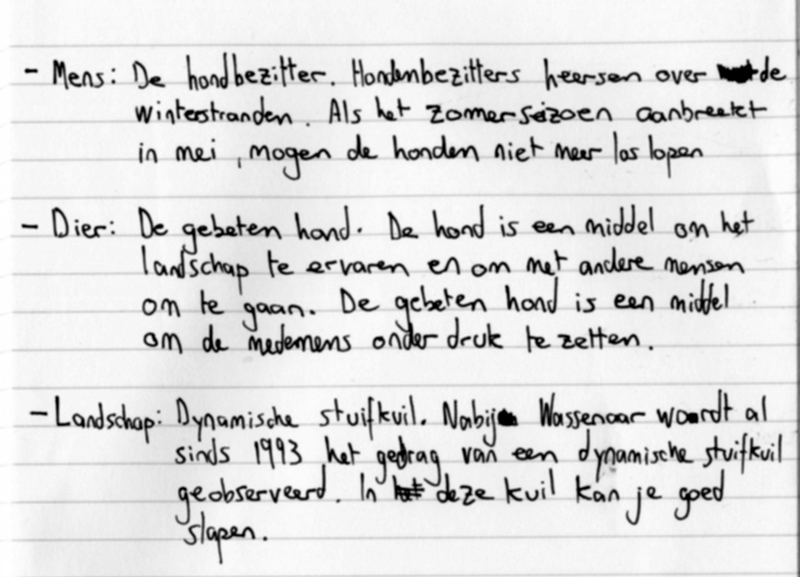 - Mens: De hondbezitter. Hondenbezitters heersen over de
winterstranden. Als het zomerseizoen aanbreekt
in mei, mogen de honden niet meer los lopen
- Dier: De gebeten hond. De hond is een middel om het
landschap te ervaren en om met andere mensen
om te gaan. De gebeten hond is een middel
om de medemens onder druk te zetten.
- Landschap: Dynamische stuifkuil. Nabij Wassenaar wordt al
sinds 1993 het gedrag van een dynamische stuifkuil
geobserveerd. In deze kuil kan je goed
slapen.